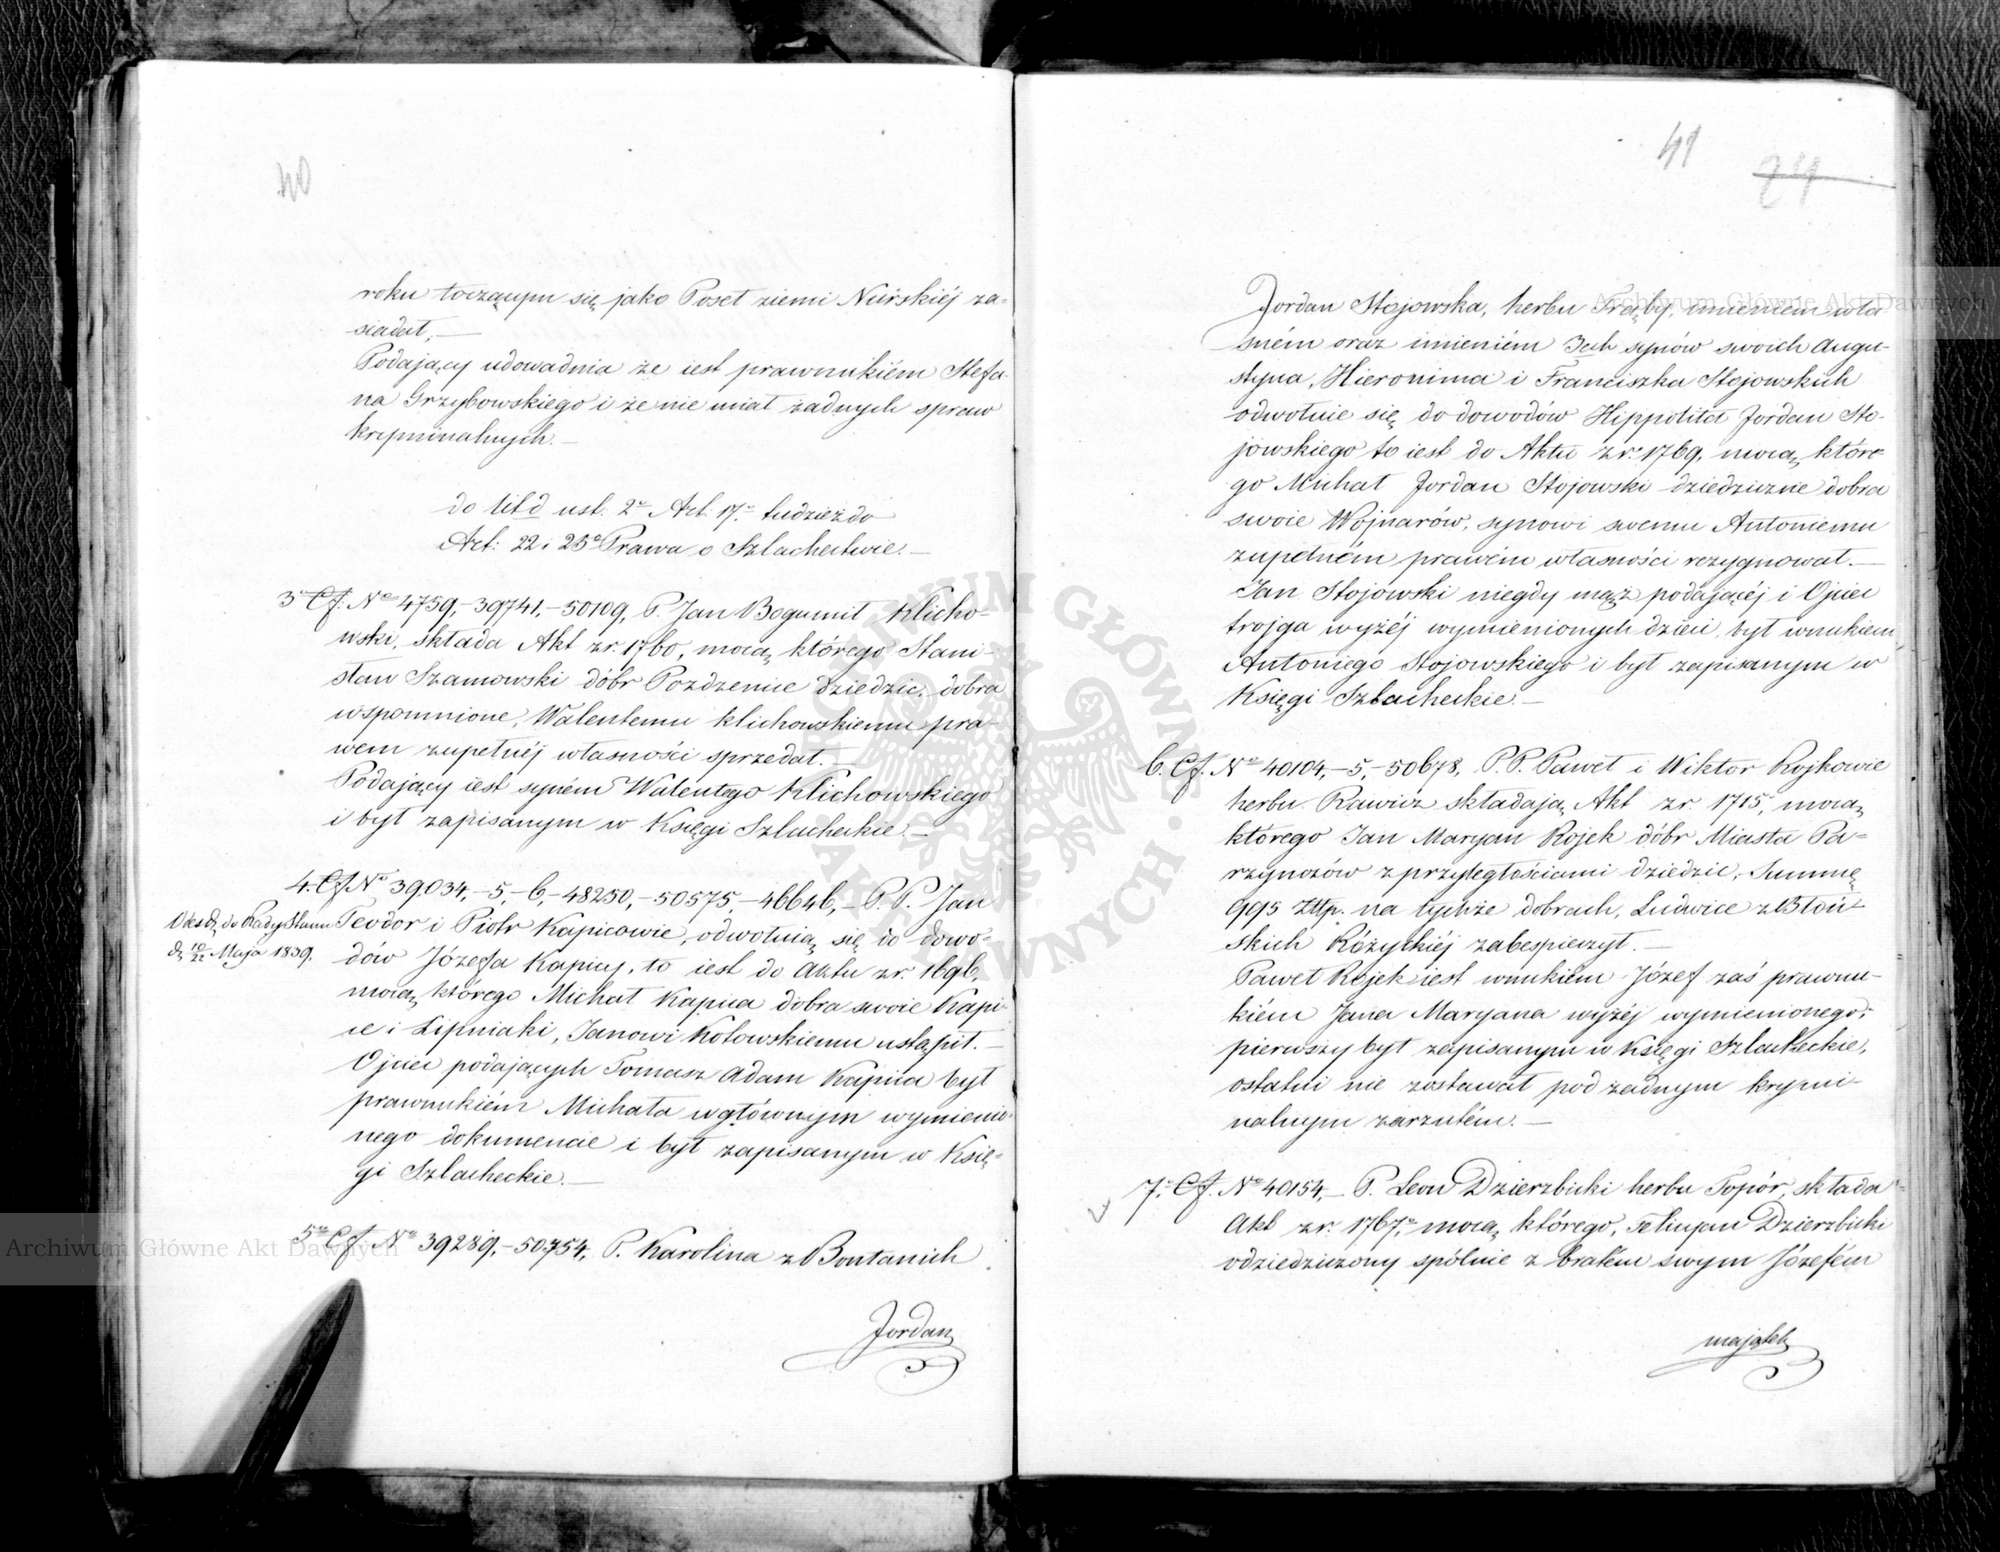 40
roku toczącym się jako Poseł ziemi Nurskiéj za-
siadał,—
Podający udowadnia że iest prawnukiém Stefa-
na Grzybowskiego i że nie miał żadnych spraw
kryminalnych.—
do lit d ust: 2º Art: 17º tudzież do
Art: 22 i 23º Prawa o Szlachectwie.—
3º Cf. Nº 4759,-39741,-50109, P. Jan Bogumił Klicho-
wski, składa Akt z r. 1760, mocą którego Stani-
sław Szamowski dóbr Pozdzenice dziedzic, dobra
wspomnione, Walentemu Klichowskiemu pra-
wem zupełnéj własności sprzedał.—
Podający iest synem Walentego Klichowskiego
i był zapisanym w Księgi Szlacheckie.—
4. Cf Nº 39034,-5,-6,-48250,-50575,-46646,- P. P. Jan
Teodor i Piotr Kapicowie, odwołuią się do dowo-
dów Józefa Kapicy, to iest do Aktu z r. 1696,
mocą którego Michał Kapica dobra swoie Kapi-
ce i Lipniaki, Janowi Kołowskiemu ustąpił.—
Ojciec podających Tomasz Adam Kapica był
prawnukiém Michała w głównym wymienio-
nego dokumencie i był zapisanym w Księ-
gi Szlacheckie.—
do Rady Stanu
d. 10/22 Maja 1839.
5º Cf. Nº 39289,-50754, P. Karolina z Bontanich
Jordan
41
24
Jordan Stojowska, herbu Trąby, imieniem wła
sném oraz imieniém 3ch synów swoich Augu-
styna, Hieronima i Franciszka Stojowskich
odwołuie się do dowodów Hippolita Jordan Sto-
jowskiego to iest do Aktu z r. 1769, mocą które-
go Michał Jordan Stojowski dziedziczne dobra
swoie Wojnarów, synowi swemu Antoniemu
zupełném prawém własności rezygnował.—
Jan Stojowski niegdy mąż podającéj i Ojciec
trojga wyżéj wymienionych dzieci, był wnukiem
Antoniego Stojowskiego i był zapisanym w
Księgi Szlacheckie.—
6. Cf. Nº 40104,-5,-50678, P. P. Paweł i Wiktor Rojkowie
herbu Rawicz składają Akt z r. 1715, mocą
którego Jan Maryan Rojek dóbr Miasta Pa-
rzynozów z przyległościami dziedzic, Summę
995 Złtp. na tychże dobrach, Ludwice z Błoń-
skich Różyckiéj zabespieczył.—
Paweł Rojek iest wnukiem Józef zaś prawnu-
kiém Jana Maryana wyżéj wymienionego;
pierwszy był zapisanym w Księgi Szlacheckie,
ostatni nie zostawał pod żadnym krymi-
nalnym zarzutém.—
7º Cf. Nº 40154,- P. Leon Dzierzbicki herbu Topór, składa
Akt z r. 1767, mocą którego, Felicyan Dzierzbicki
odziedziczony spólnie z bratem swym Józefém
majątek
Archiwum Główne Akt Dawnych
Archiwum Główne Akt Dawnych
ARCHIWUM GŁÓWNE AKT DAWNYCH